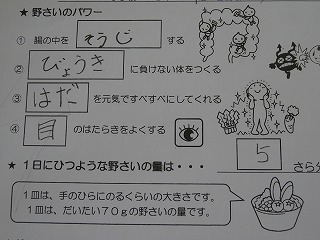 ★ 野さいのパワー
① 腸の中を そうじ する
② びょうき に負けない体をつくる
③ はだ を元気ですべすべにしてくれる
④ 目 のはたらきをよくする
★ 1日にひつような野さいの量は・・・ 5 さら分
1皿は、手のひらにのるくらいの大きさです。
1皿は、だいたい70gの野さいの量です。